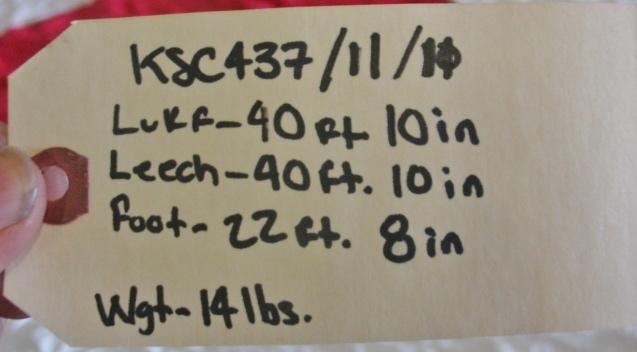 KSC437/11/10
Luff-40 ft 10in
Leech-40ft. 10in
Foot- 22ft. 8in
Wgt-14lbs.